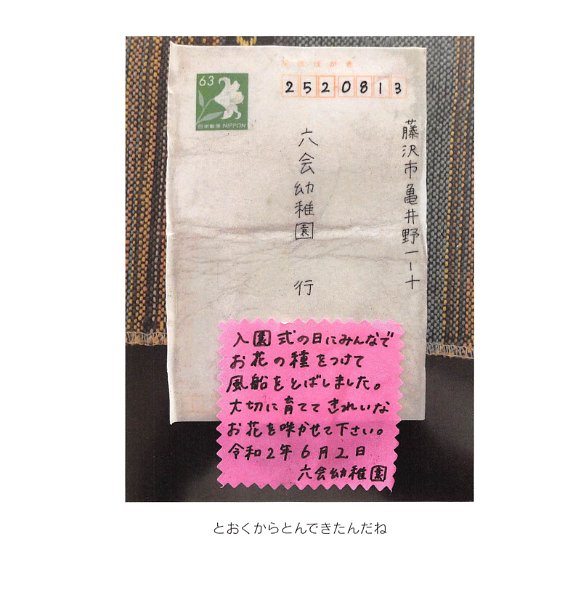 郵便はがき
63
日本郵便 NIPPON
2520813
藤沢市亀井野一ー十
六会幼稚園 行
入園式の日にみんなで
お花の種をつけて
風船をとばしました。
大切に育ててきれいな
お花を咲かせて下さい。
令和2年6月2日
六会幼稚園
とおくからとんできたんだね